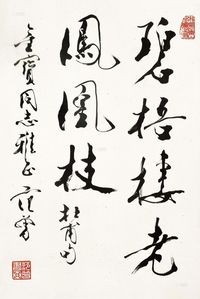 碧梧栖老
鳳凰枝 杜甫句
金寶同志雅正 范曾